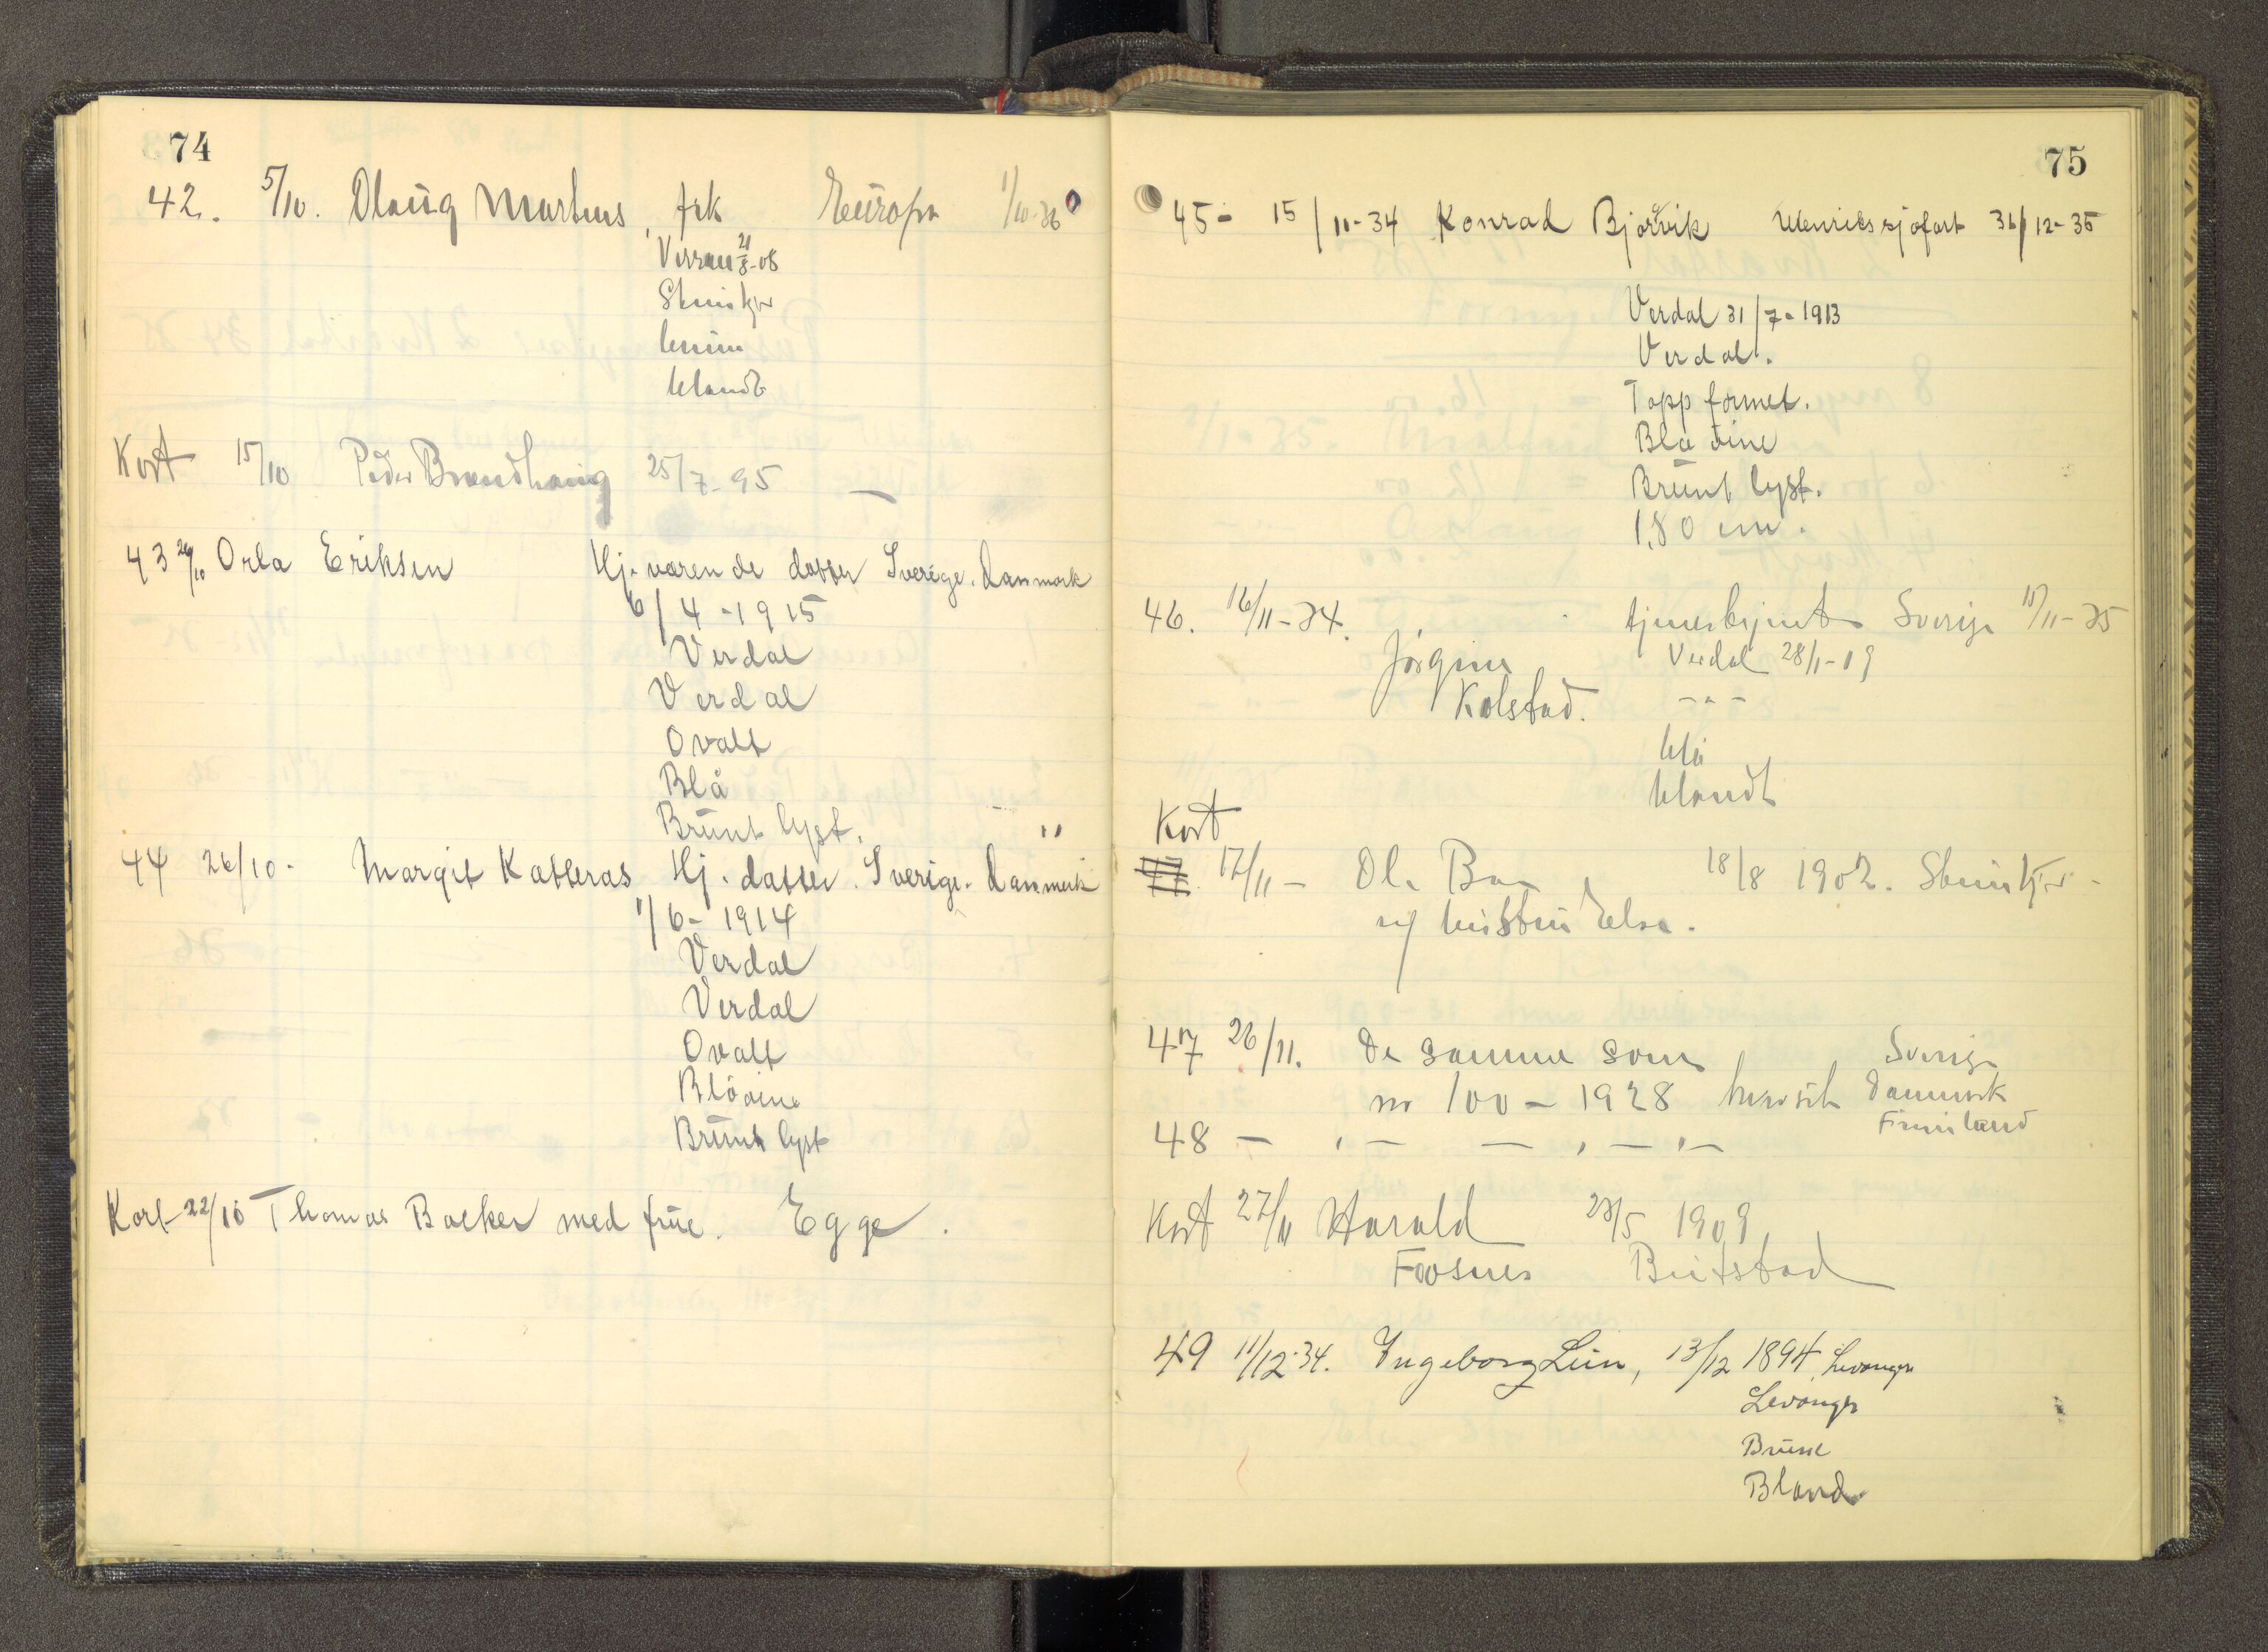 74
42. 5/10. Olaug Martins, frk Europa 1/10-36
Verran 21/8-08
Steinkjer
brune
blondt
Kort 15/10 Peder Brandhaug 25/7-95 —
43 26/10 Orla Eriksen Hj. værende datter Sverige. Danmark
6/4-1915
Verdal
Verdal
Ovalt
Blå
Brunt lyst. "
44 26/10- Margit Katteras Hj. datter. Sverige. Danmark
1/6-1914
Verdal
Verdal
Ovalt
Blå øine
Brunt lyst
Kort 22/10 Thomas Backer med frue. Egge.
75
45- 15/11-34 Konrad Bjørvik Utenrikssjøfart 31/12-35
Verdal 31/7-1913
Verdal.
Topp formet.
Bla øine
Brunt lyst.
1,80 cm.
46. 16/11-34. Sverige 15/11-35
Jørgine Verdal 28/1-19
Kolstad. -"-
blå
blondt
Kort
17/11- Ola Bae 18/8 1902. Steinkjer-
m/ hustru Else.
47 26/11. De samme som Sverige
nr 100-1928 Danmark
Finnland
48 — " — — " — " —
Kort 27/11 Harald 23/5 1909
Fosnes Beitstad
49 11/12-34. Ingeborg Lein, 13/12 1894, Levanger
Levanger
Brune
Blond